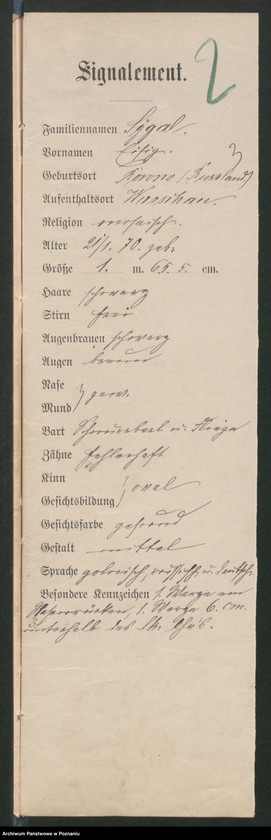 2
Signalement.
Familiennamen Sygal.
Vornamen Eisig.
Geburtsort Kowno (Russland)
Aufenthaltsort Warschau.
Religion mosaisch.
Alter 21/1. 70. geb.
Größe 1. m. 65. 5. cm.
Haare schwarz
Stirn frei
Augenbrauen schwarz
Augen braun
Nase
Mund } gew.
Bart Schnurrbart u. Fliege
Zähne fehlerhaft
Kinn
Gesichtsbildung } oval
Gesichtsfarbe gesund
Gestalt mittel
Sprache polnisch, russisch, u. deutsch.
Besondere Kennzeichen 1. Warze am
1. Warze 6. cm.
unterhalb des lk. Ohrs.
Archiwum Państwowe w Poznaniu